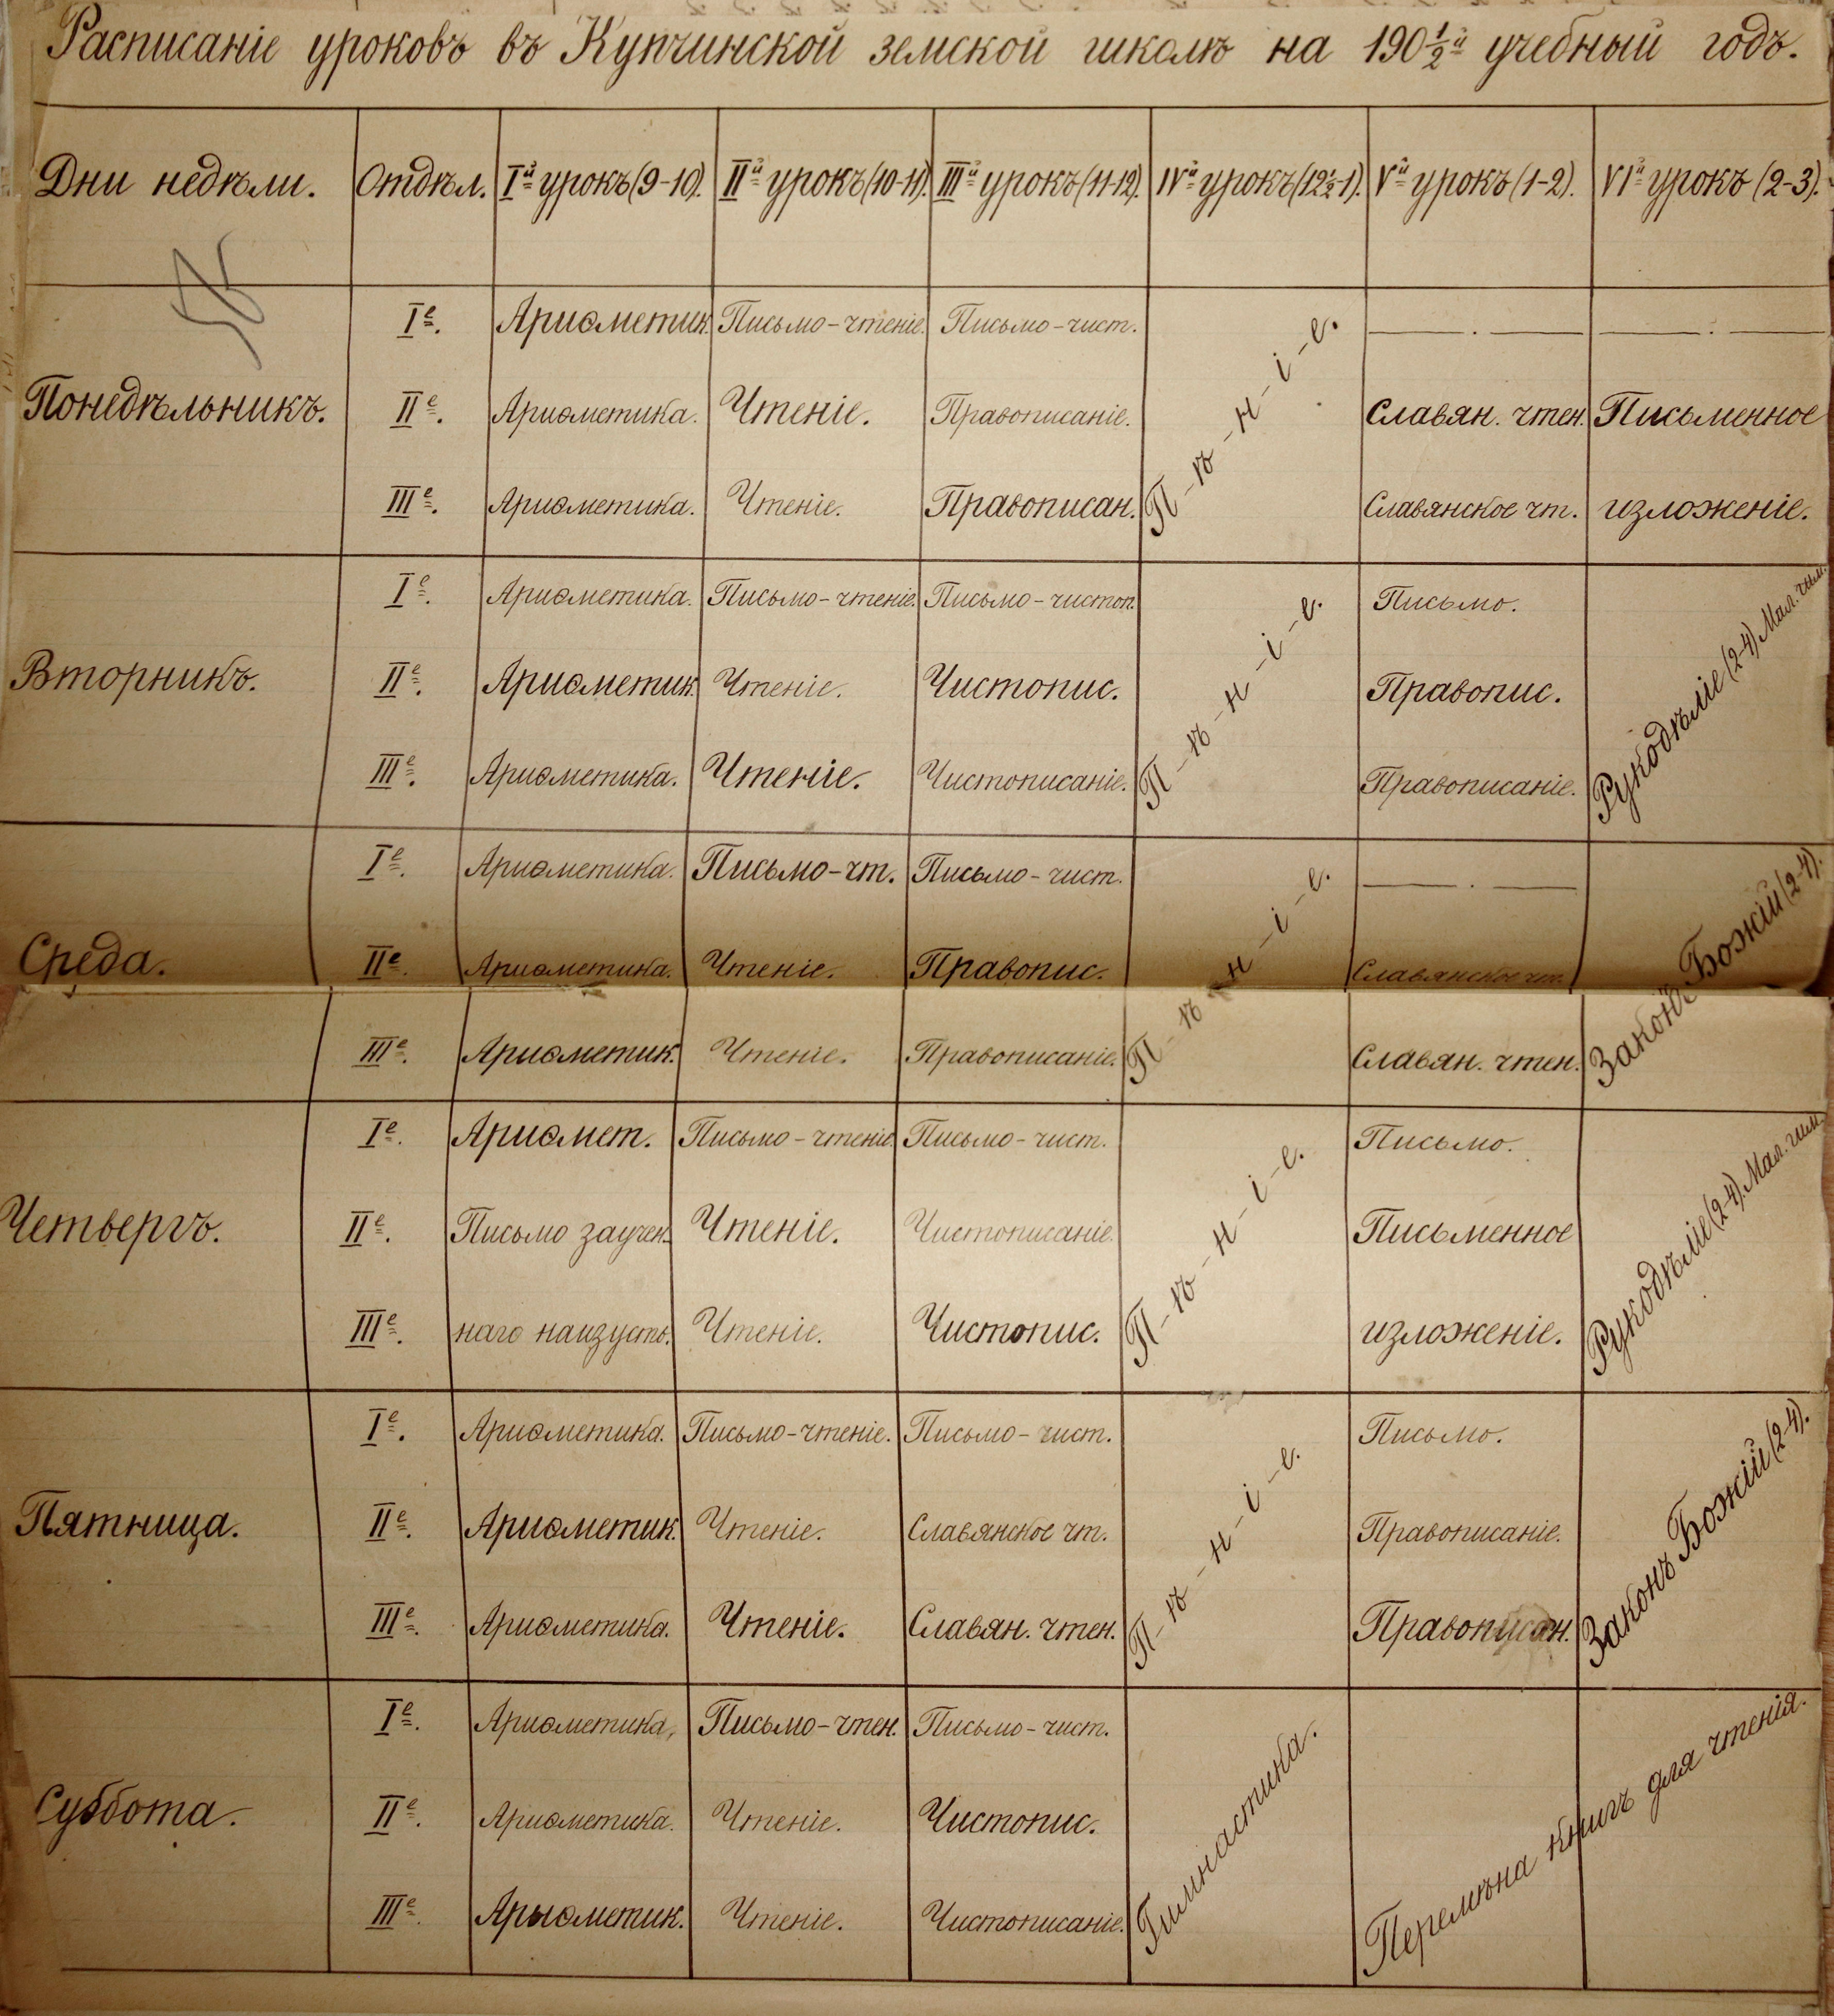 Расписаніе уроковъ въ Купчинской земской школѣ на 190 1/2 й учебный годъ.
Дни недѣли. Отдѣл. Iй урокъ (9-10). IIй урокъ (10-11). IIIй урокъ (11-12). IVй урокъ (12½-1). Vй урокъ (1-2). VIй урокъ (2-3).
Iе. Ариѳметик. Письмо-чтеніе. Письмо-чист.
Понедѣльникъ. IIе. Ариѳметика. Чтеніе. Правописаніе. П-ѣ-н-і-е. Славян. чтен. Письменное
IIIе. Ариѳметика. Чтеніе. Правописан. Славянское чт. изложеніе.
Iе. Ариѳметика. Письмо-чтеніе. Письмо-чистоп. Письмо.
Вторникъ. IIе. Ариѳметик. Чтеніе. Чистопис. П-ѣ-н-і-е. Правопис. Рукодѣліе (2-4). Мал. гим.
IIIе. Ариѳметика. Чтеніе. Чистописаніе. Правописаніе.
Iе. Ариѳметика. Письмо-чт. Письмо-чист.
Среда. IIе. Ариѳметика. Чтеніе. Правопис. П-ѣ-н-і-е. Славянское чт. Законъ Божій (2-4).
IIIе. Ариѳметик. Чтеніе. Правописаніе. Славян. чтен.
Iе. Ариѳмет. Письмо-чтеніе. Письмо-чист. Письмо.
Четвергъ. IIе. Письмо заучен- Чтеніе. Чистописаніе. П-ѣ-н-і-е. Письменное Рукодѣліе (2-4). Мал. гим.
IIIе. наго наизусть. Чтеніе. Чистопис. изложеніе.
Iе. Ариѳметика. Письмо-чтеніе. Письмо-чист. Письмо.
Пятница. IIе. Ариѳметик. Чтеніе. Славянское чт. П-ѣ-н-і-е. Правописаніе. Законъ Божій (2-4).
IIIе. Ариѳметика. Чтеніе. Славян. чтен. Правописан.
Iе. Ариѳметика. Письмо-чтен. Письмо-чист.
Суббота. IIе. Ариѳметика. Чтеніе. Чистопис. Гимнастика. Перемѣна книгъ для чтенія.
IIIе. Арыѳметик. Чтеніе. Чистописаніе.